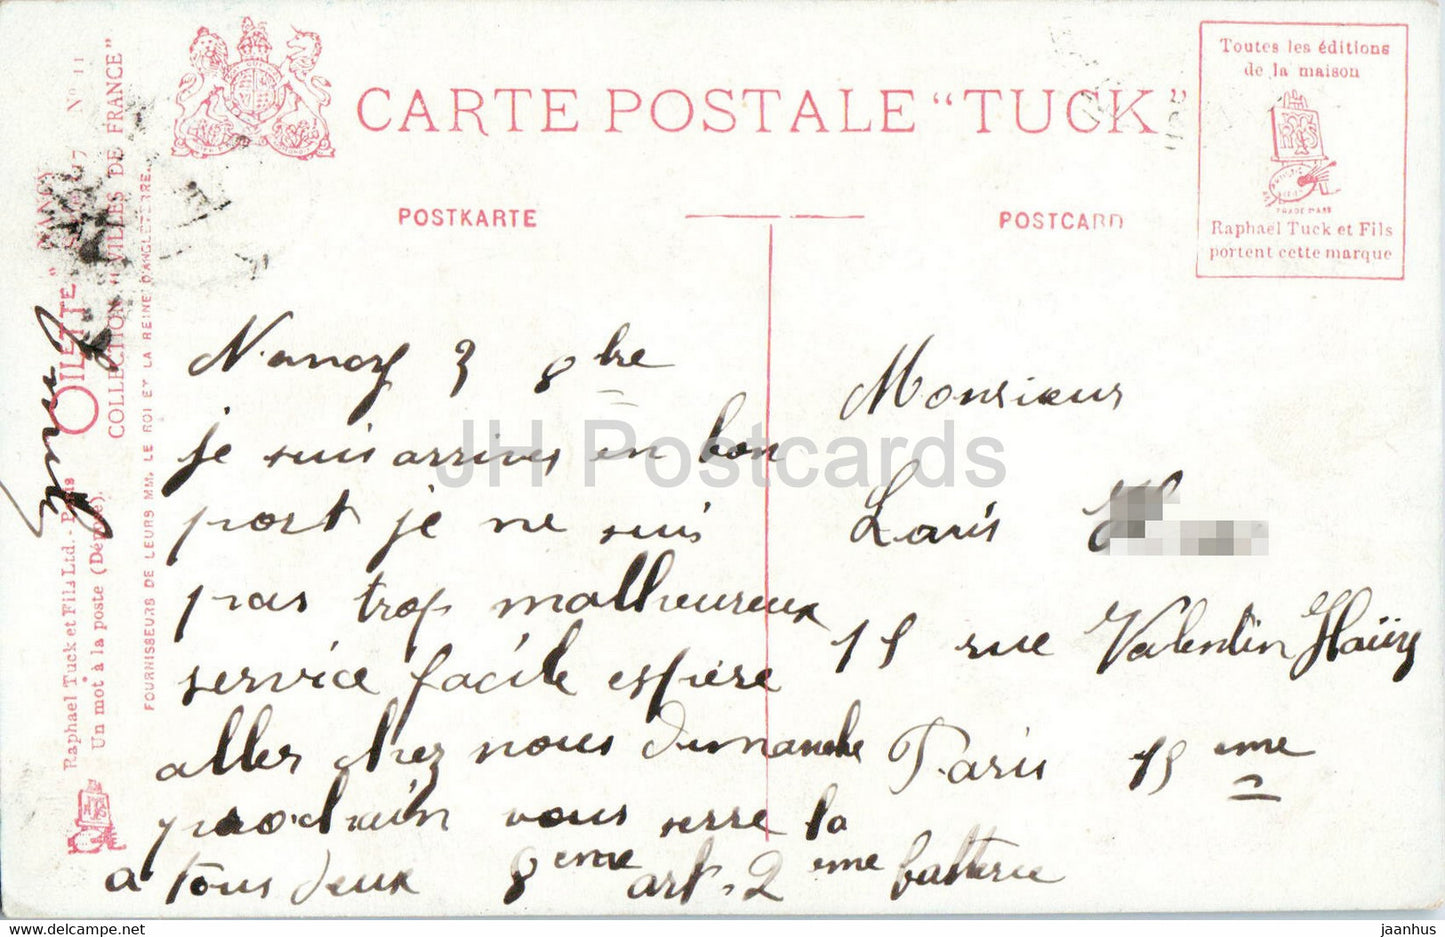 CARTE POSTALE "TUCK"
POSTKARTE
POSTCARD
Toutes les éditions
de la maison
TRADE MARK
Raphael Tuck et Fils
portent cette marque
"NANCY" N° 11
OILETTE
COLLECTION "VILLES DE FRANCE"
FOURNISSEURS DE LEURS MM. LE ROI ET LA REINE D'ANGLETERRE.
Raphael Tuck et Fils Ltd.- Paris
Un mot à la poste (Déposé).
Nancy 3 8bre
je suis arrives en bon
port je ne suis
pas trop malheureux
service facile espère
aller chez nous dimanche
prochain vous serre la
a tous deux 8eme art. 2eme batterie
Monsieur
Louis
15 rue Valentin Haüy
Paris 15eme
JH Postcards
HipPostcard.com
jaanhus